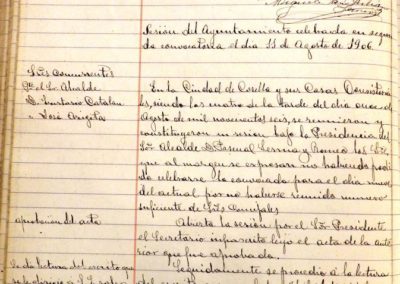 Sesión del Ayuntamiento celebrada en segun-
da convocatoria el dia 11 de Agosto de 1906.
Sres Concurrentes
Pte el Sr. Alcalde
D. Eustasio Catalan
" José Arigita
En la Ciudad de Corella y sus Casas Consistoria-
les, siendo las cuatro de la tarde del dia once de
Agosto de mil novecientos seis, se reunieron y
constituyeron en sesion bajo la Presidencia del
Sr. Alcalde D. Pascual y Romeo los Sres.
que al margen se expresan no habiendo podi-
do celebrarse la convocada para el dia nueve
del actual por no haberse reunido numero
suficiente de Sres Concejales
aprobación del acta
Abierta la sesión por el Sr. Presidente
el Secretario infrascrito leyó el acta de la ante-
rior que fue aprobada.
Se dá lectura del escrito que
Seguidamente se procedió a la lectura